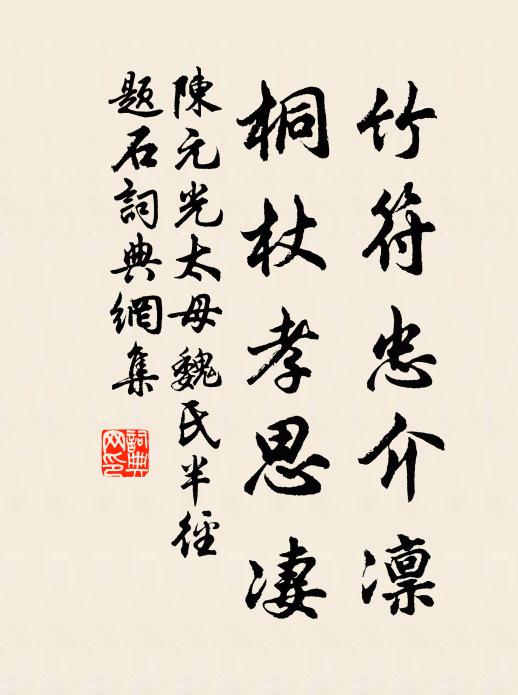 竹符忠介凛
桐杖孝思凄
陳元光太母魏氏半徑
題石詞典網集
詞典網印